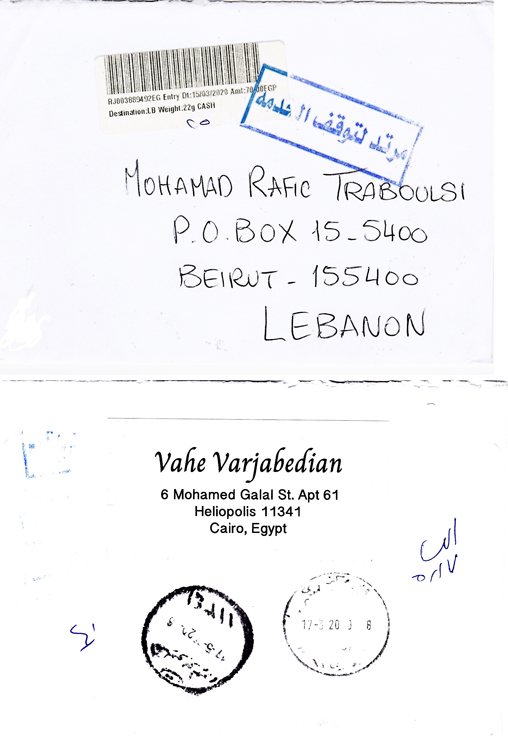 RJ003689492EG Entry Dt:15/03/2020 Amt:70.00EGP
Destination:LB Weight:22g CASH
مرتد لتوقف الخدمة
MOHAMAD RAFIC TRABOULSI
P.O.BOX 15-5400
BEIRUT - 155400
LEBANON
Vahe Varjabedian
6 Mohamed Galal St. Apt 61
Heliopolis 11341
Cairo, Egypt
١١٣٤١